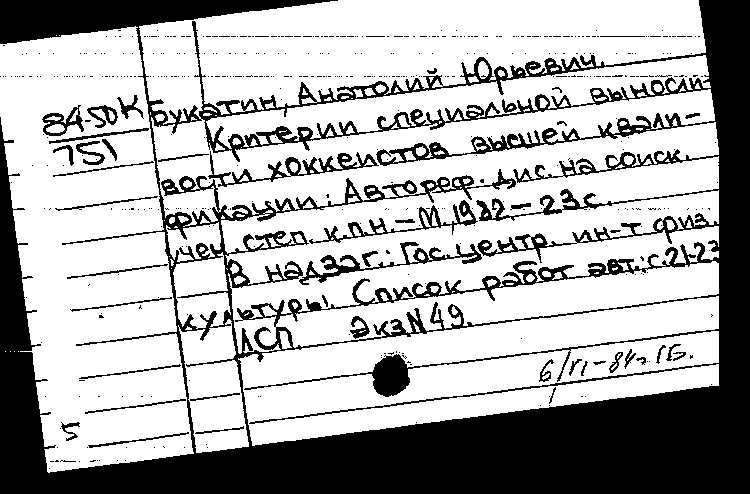 84-50К
751
Букатин, Анатолий Юрьевич.
Критерии специальной выносли-
вости хоккеистов высшей квали-
фикации: Автореф. дис. на соиск.
учен. степ. к.п.н. - М., 1982. - 23 с.
В надзаг.: Гос. центр. ин-т физ.
культуры. Список работ авт.: с. 21-23
ДСП. Экз. N 49.
6/VI-84г
5